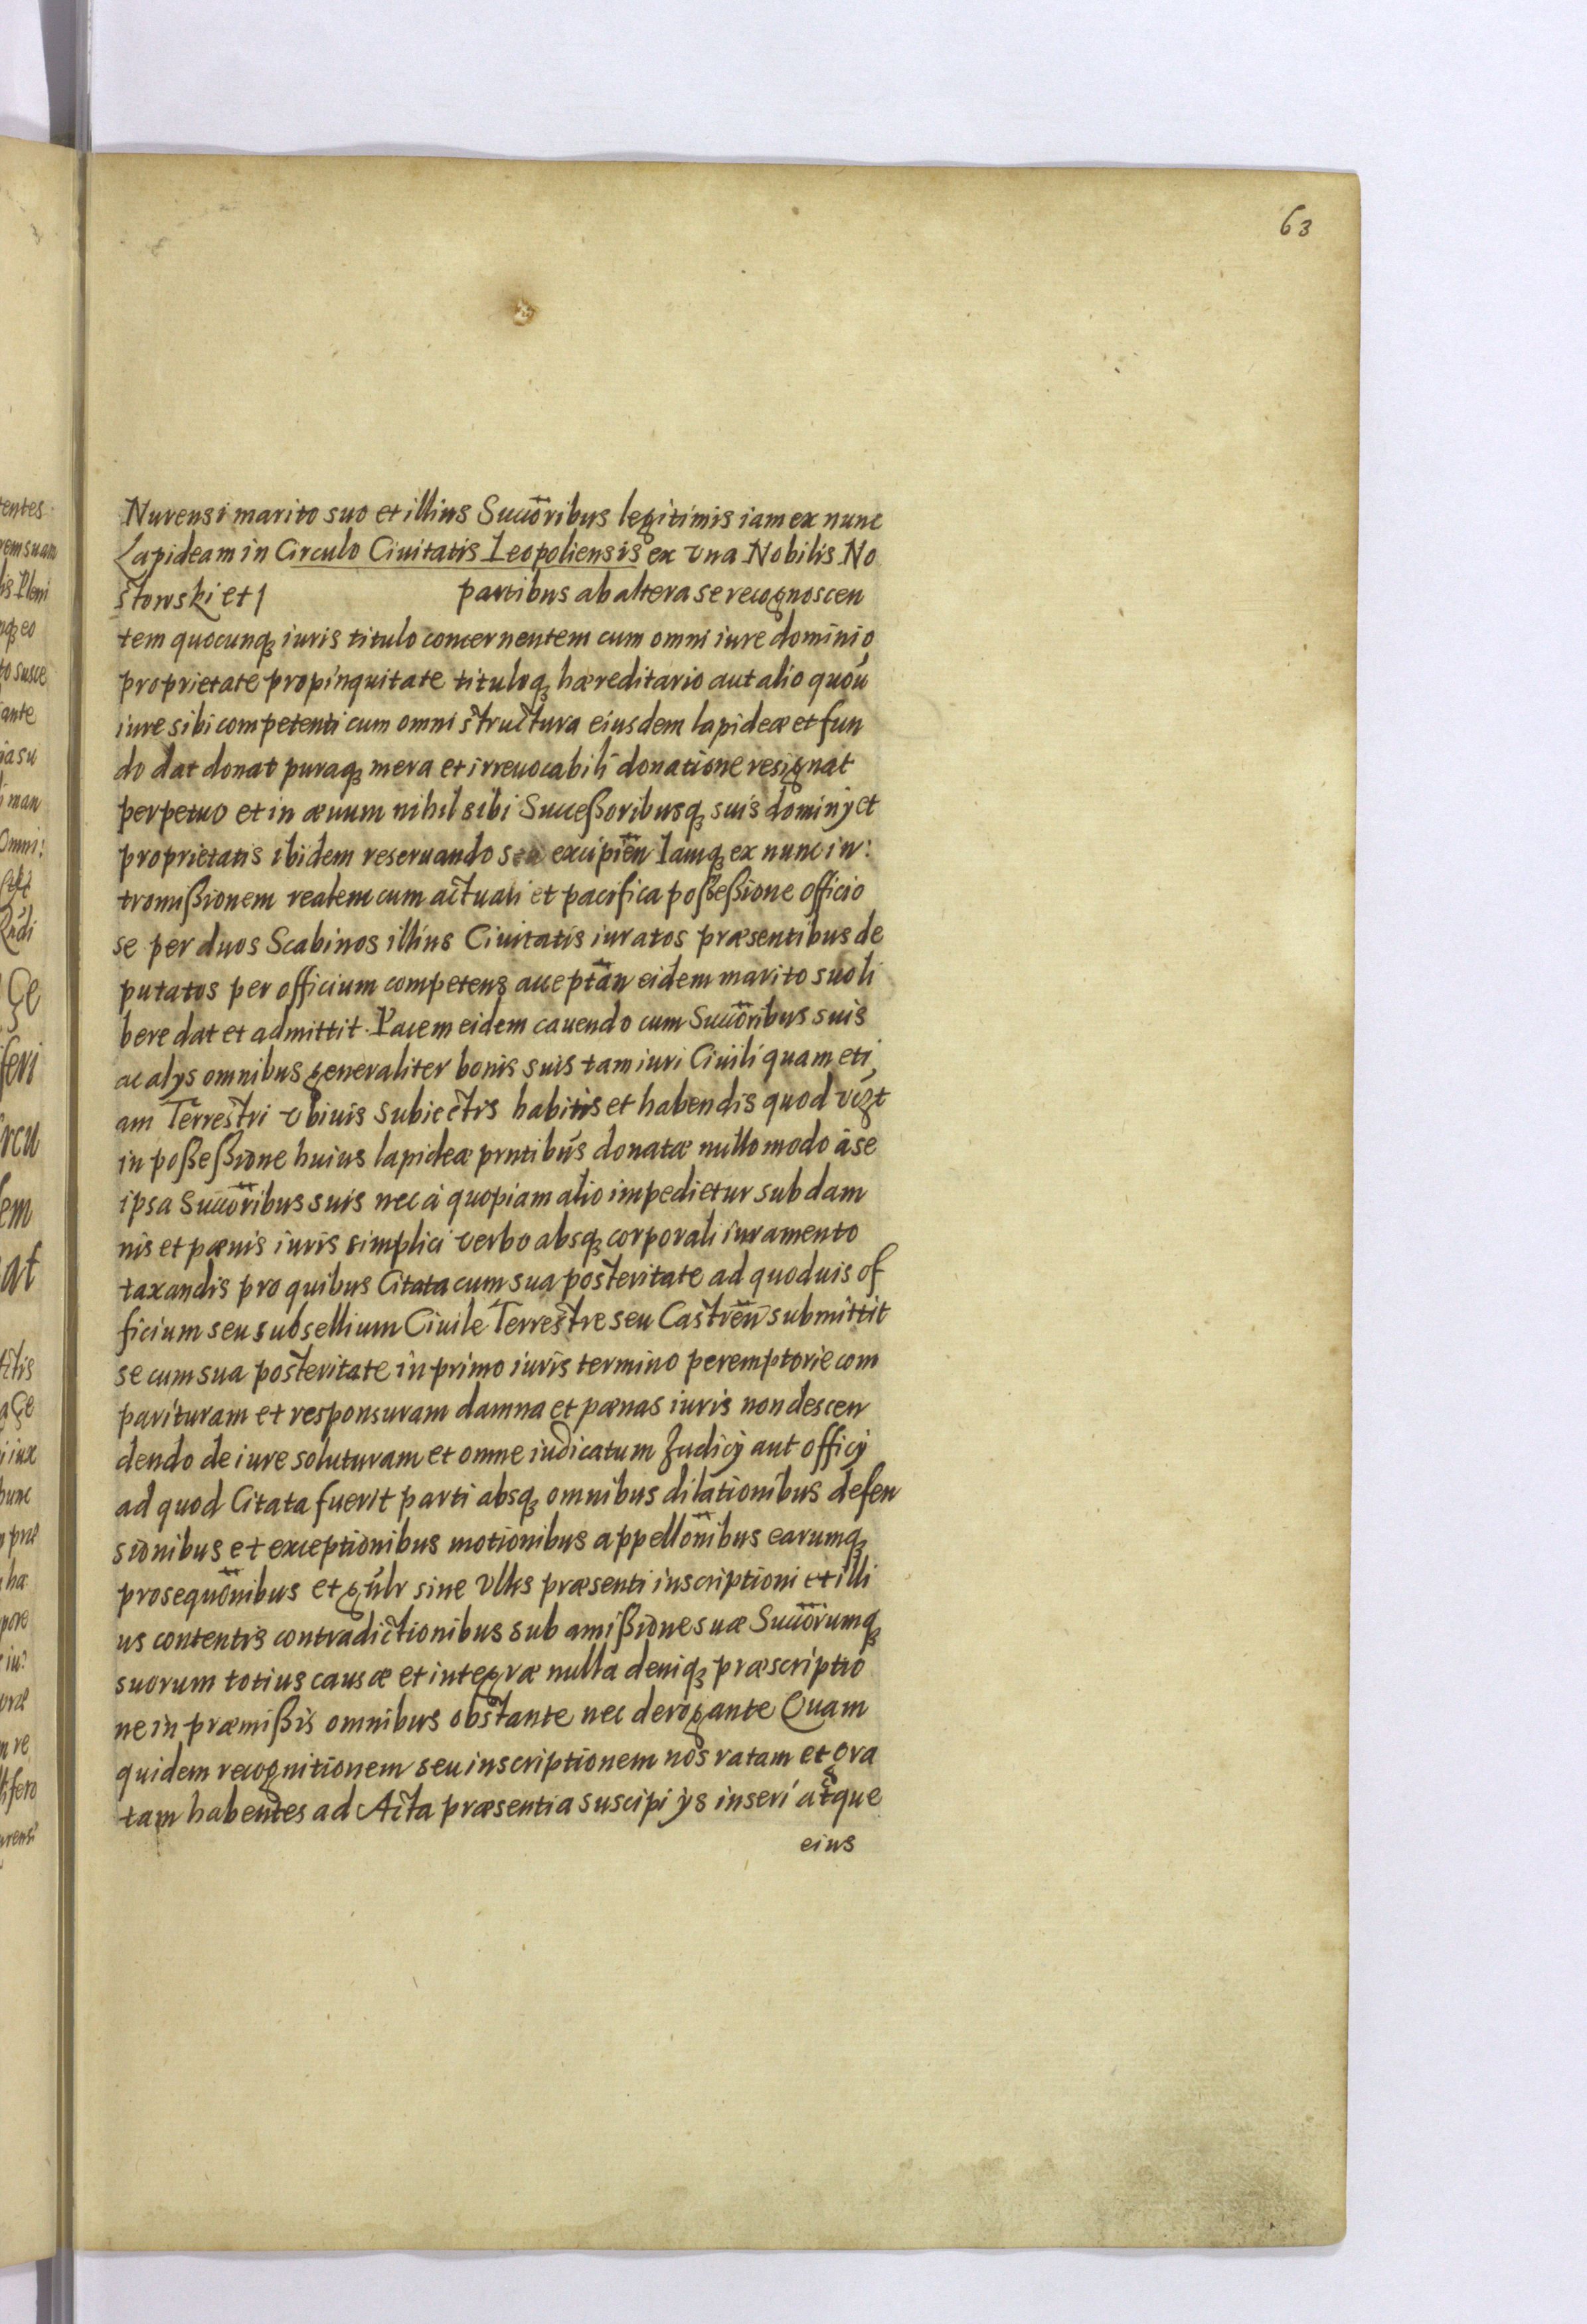 63
Nurensi marito suo et illius Succōribus legitimis iam ex nunc
Lapideam in Circulo Ciuitatis Leopoliensis ex vna Nobilis No
stowski et J partibus ab altera se recognoscen
tem quocunq; iuris titulo concernentem cum omni iure dominio
proprietate propinquitate tituloq; hæreditario aut alio quoū
iure sibi competenti cum omni structura eiusdem lapideæ et fun
do dat donat puraq; mera et irreuocabili donatione resignat
perpetuo et in æuum nihil sibi Succeßoribusq; suis dominÿ et
proprietatis ibidem reseruando seu excipien̄ Iamq; ex nunc in:
tromißionem realem cum actuali et pacifica poßeßione officio
se per duos Scabinos illius Ciuitatis iuratos præsentibus de
putatos per officium competens acceptan̄ eidem marito suo li
bere dat et admittit. Pacem eidem cauendo cum Succōribus suis
ac alÿs omnibus generaliter bonis suis tam iuri Ciuili quam eti
am Terrestri vbiuis subiectis habitis et habendis quod vizt
in poßeßione huius lapideæ pntibūs donatæ nullo modo à se
ipsa Succōribus suis nec à quopiam alio impedietur sub dam
nis et pænis iuris simplici verbo absq; corporali iuramento
taxandis pro quibus Citata cum sua posteritate ad quoduis of
ficium seu subsellium Ciuile Terrestre seu Castren̄ submittit
se cum sua posteritate in primo iuris termino peremptorie com
parituram et responsuram damna et pænas iuris non descen
dendo de iure soluturam et omne iudicatum Judicÿ aut officÿ
ad quod Citata fuerit parti absq; omnibus dilationibus defen
sionibus et exceptionibus motionibus appellōnibus earumq;
prosequōnibus et gn̄lr sine vllis præsenti inscriptioni et illi
us contentis contradictionibus sub amißione suæ Succōrumq;
suorum totius causæ et integræ nulla deniq; præscriptio
ne in præmißis omnibus obstante nec derogante Quam
quidem recognitionem seu inscriptionem nos ratam et gra
tam habentes ad Acta præsentia suscipi ÿs inseri atque
eius